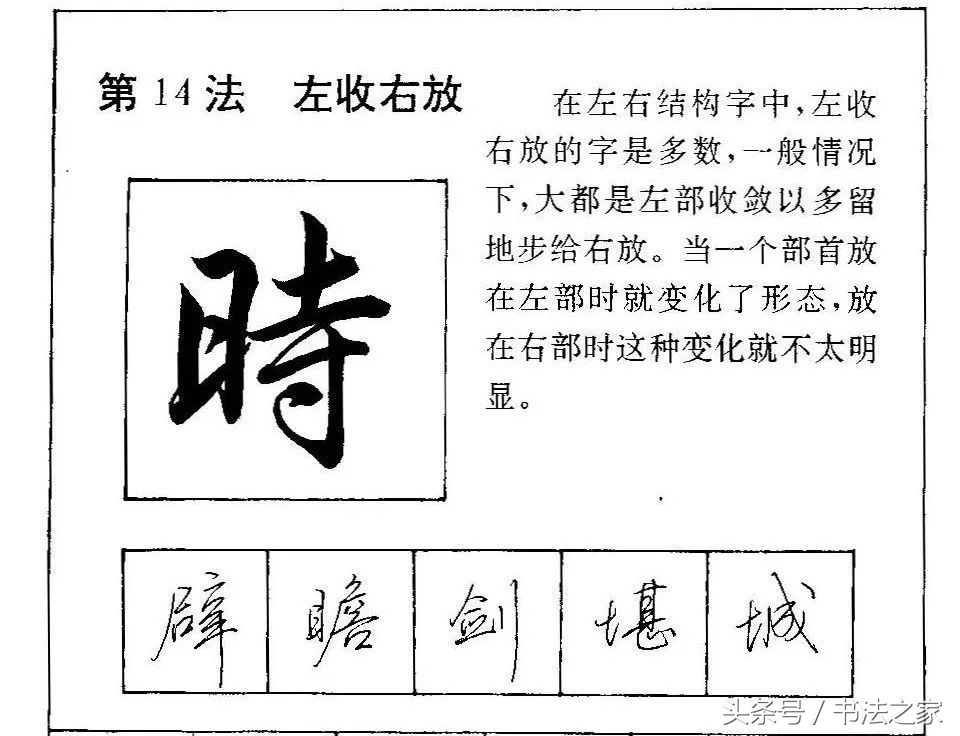 第14法 左收右放
在左右结构字中,左收
右放的字是多数,一般情况
下,大都是左部收敛以多留
地步给右放。当一个部首放
在左部时就变化了形态,放
在右部时这种变化就不太明
显。
時
辟 瞻 剑 堪 城
头条号 / 书法之家